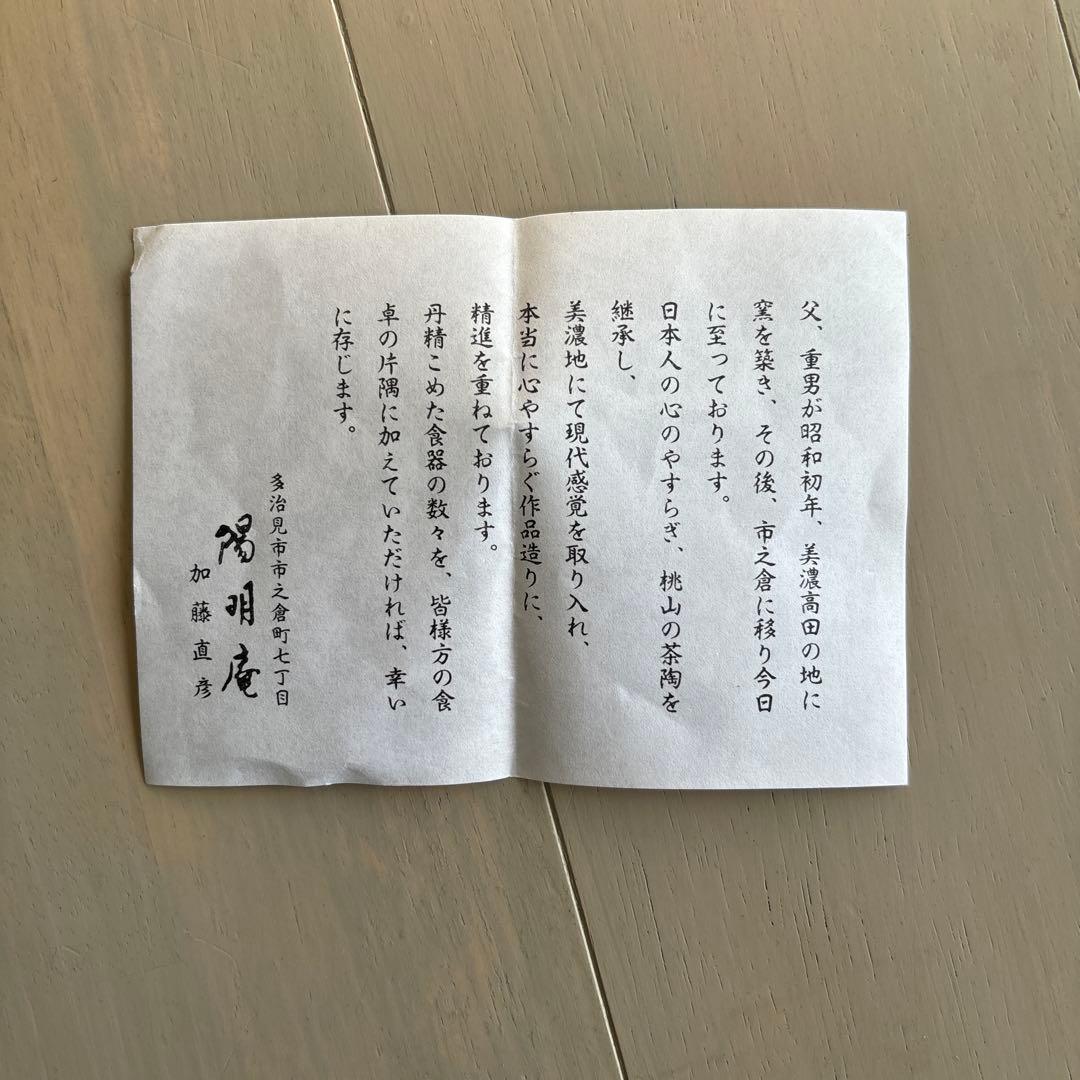 父、重男が昭和初年、美濃高田の地に
窯を築き、その後、市之倉に移り今日
に至っております。
日本人の心のやすらぎ、桃山の茶陶を
継承し、
美濃地にて現代感覚を取り入れ、
本当に心やすらぐ作品造りに、
精進を重ねております。
丹精こめた食器の数々を、皆様方の食
卓の片隅に加えていただければ、幸い
に存じます。
多治見市市之倉町七丁目
陽明庵
加藤直彦